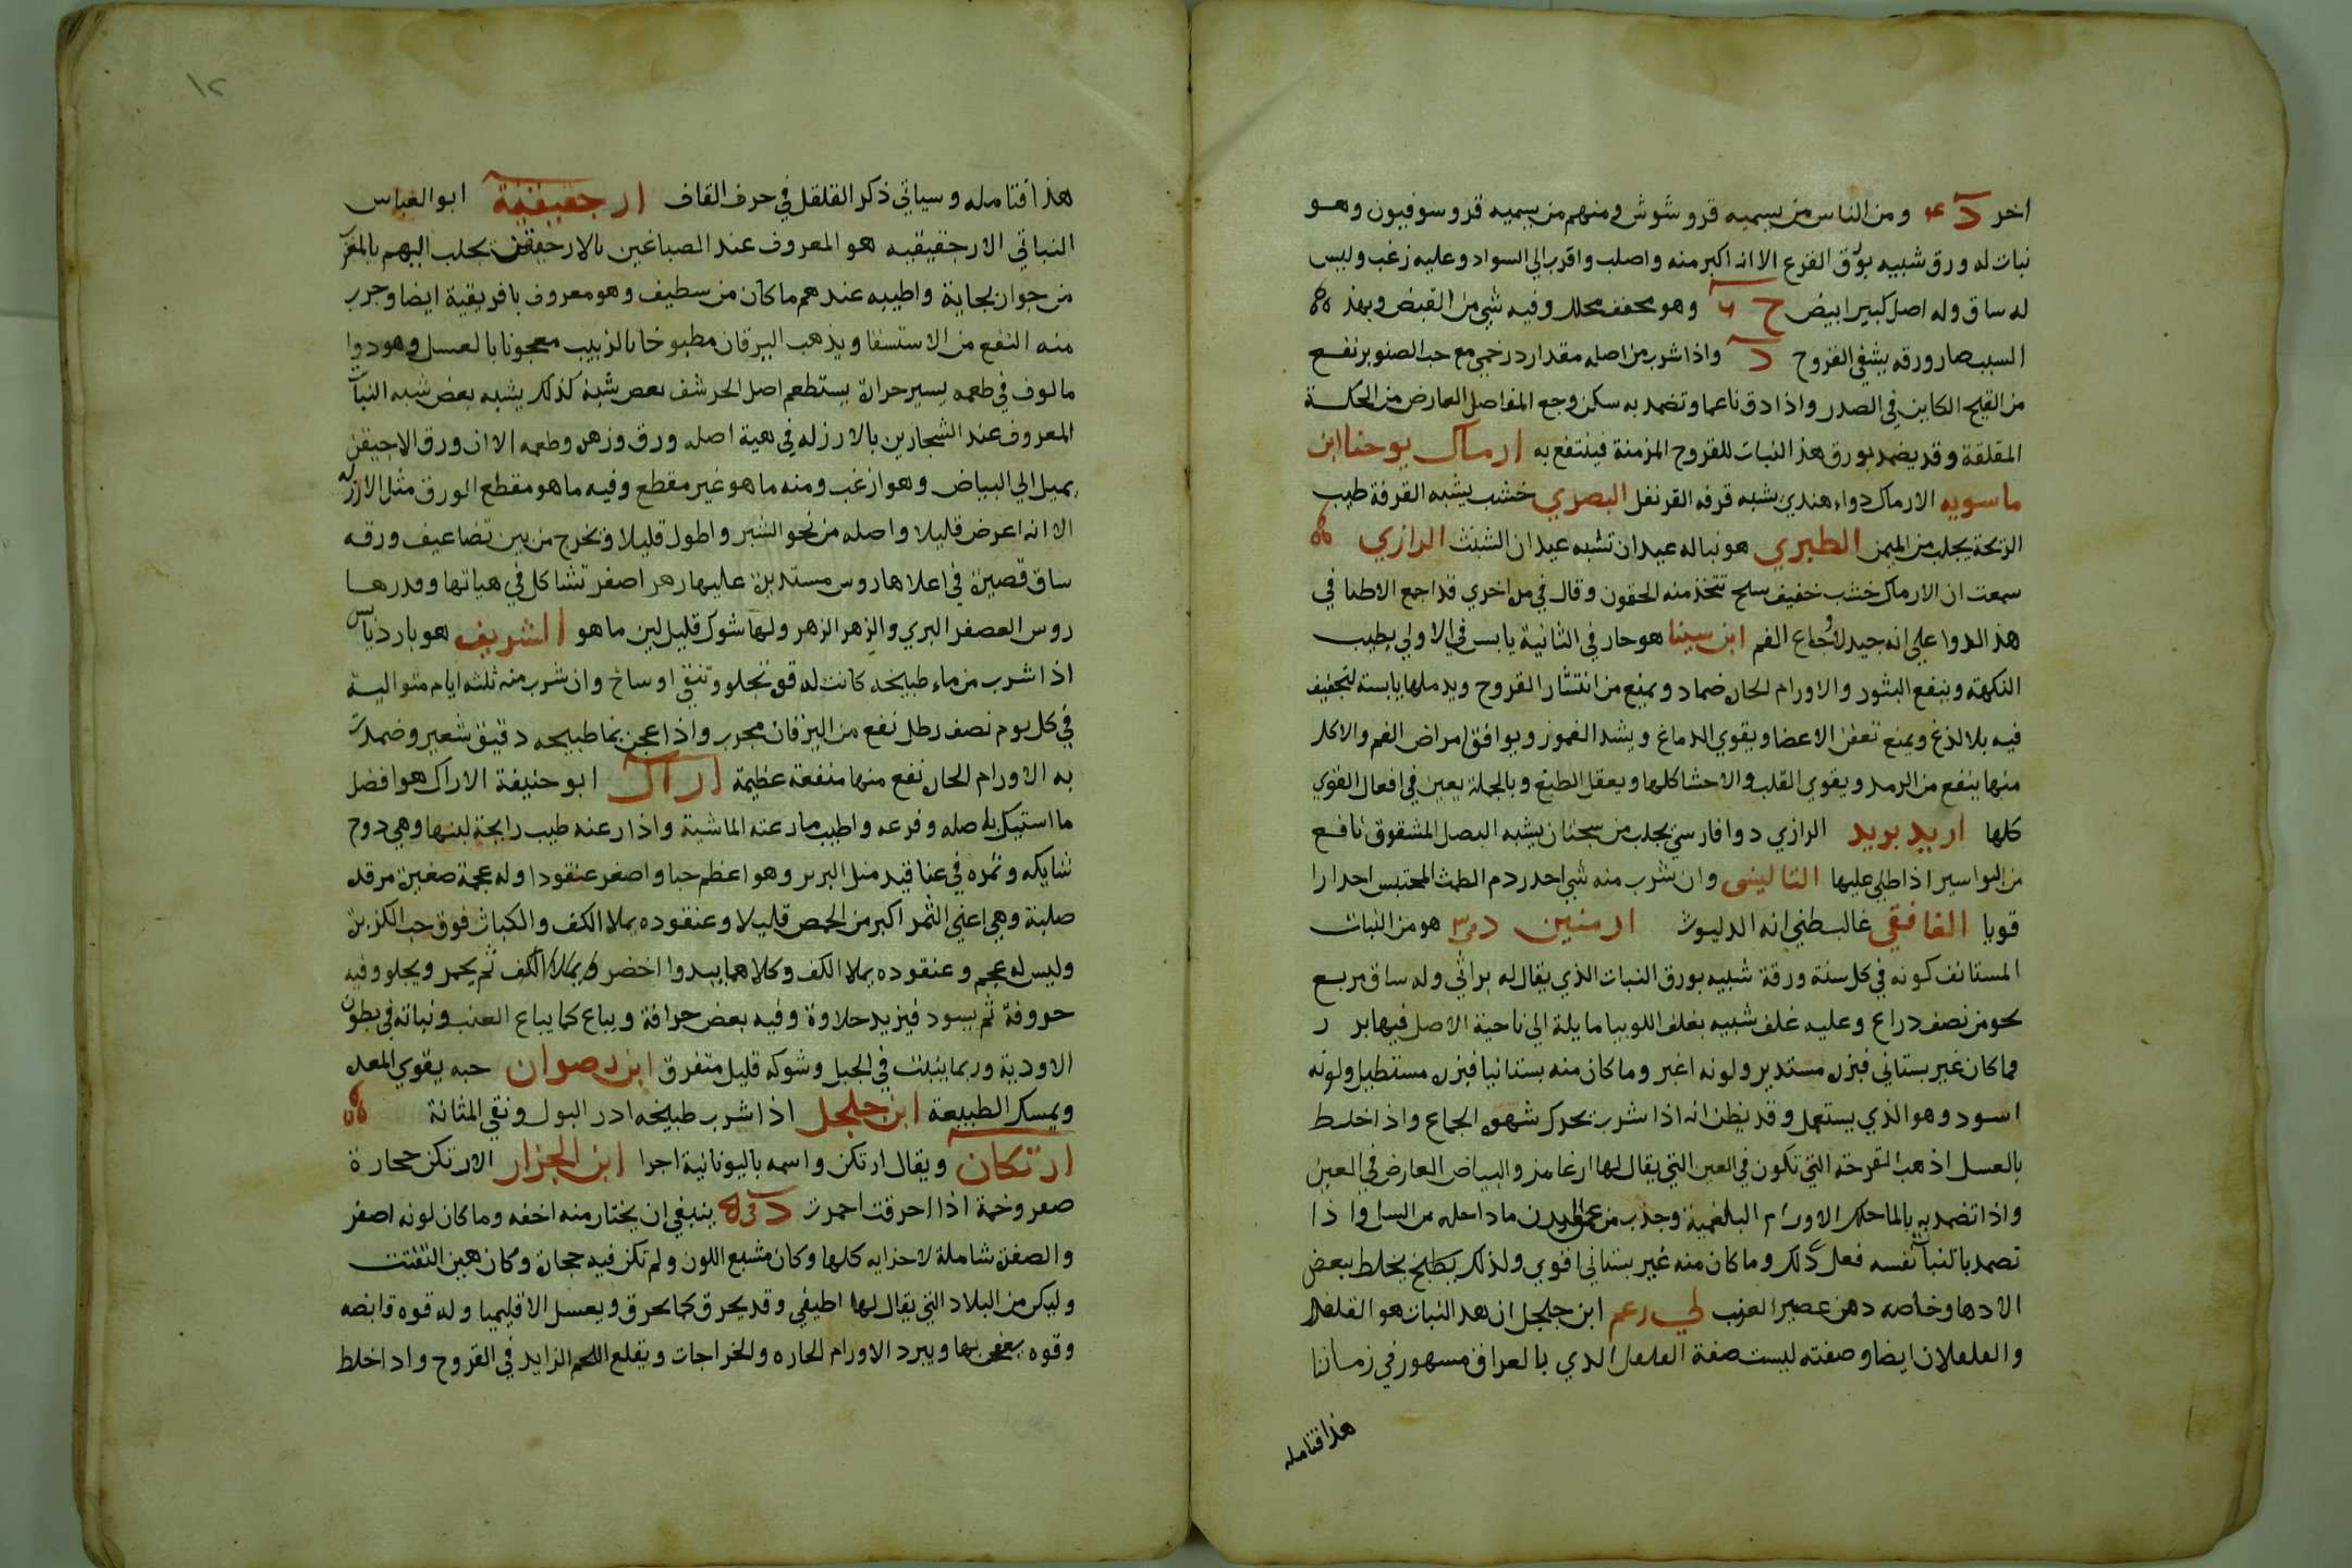 اخر د ٤ ومن الناس من يسميه قروشوش ومنهم من يسميه قروسوفيون وهو
نبات له ورق شبيه بورق القرع الا انه اكبر منه واصلب واقرب الي السواد وعليه زغب وليس
له ساق وله اصل كبير ابيض ج ٦ وهو مجفف محلل وفيه شي من القبض وبهذ
السبب صار ورقه يشفي القروح د واذا شرب من اصله مقدار درخمي مع حب الصنوبر نفع
من القيح الكاين في الصدر واذا دق ناعما وتضمد به سكن وجع المفاصل العارض من الحكة
المقلقة وقد يضمد بورق هذ النبات للقروح المزمنة فينتفع به ارماك يوحنا ابن
ماسويه الارماك دواء هندي يشبه قرفه القرنفل البصري خشب يشبه القرفة طيب
الريحة يجلب من اليمن الطبري هو نبا له عيدان تشبه عيدان الشبث الرازي
سمعت ان الارماك خشب خفيف سلح تتخذ منه الحقون وقال في مل اخري قد اجمع الاطبا في
هذ الدوا علي انه جيد لاوجاع الفم ابن سينا هو حار في الثانية يابس في الاولي يطيب
النكهة وينفع البثور والاورام الحان ضماد ويمنع من انتشار القروح ويدملها يابسته لتجفيف
فيه بلا لذع ويمنع تعفن الاعضا ويقوي الدماغ ويشد الغمور ويوافق امراض الفم والاكل
منها ينفع من الرمد ويقوي القلب والاحشا كلها ويعقل الطبع وبالجملة يعين في افعال القوي
كلها اربد بريد الرازي دوا فارسي يجلب من سجتان يشبه البصل المشقوق نافع
من البواسير اذا طلي عليها التاليني وان شرب منه شي احدر دم الطمث المحتبس احدارا
قويا الغافقي غالب ظني انه الدليوث ارمنين د ٣ هو من النبات
المستانف كونه في كل سنة ورقة شبيه بورق النبات الذي يقال له براثي وله ساق مربع
نحو من نصف دراع وعليه غلف شبيه بغلف اللوبيا مايلة الي ناحية الاصل فيها بر ر
فما كان غير بستاني فبزن مستدير ولونه اغبر وما كان منه بستانيا فبزن مستطيل ولونه
اسود وهو الذي يستعمل وقد يظن انه اذا شرب يحرك شهوه الجماع واذا خلط
بالعسل اذهب القرحة التي تكون في العين التي يقال لها ارغامن والبياض العارض في العين
واذا تضمد به بالما حلل الاورام البلغمية وجذب من عمق البدن ما داخله من السل واذا
تضمد بالنبات نفسه فعل ذلك وما كان منه غير بستاني اقوي ولذلك يطبخ يخلط ببعض
الادهان وخاصه دهن عصير العنب لي زعم ابن جلجل ان هذ النبات هو القلقل
والقلقلان ايضا وصفته ليست صفة القلقل الذي بالعراق مشهور في زماننا
هذا فتامله
هذا فتامله وسياتي ذكر القلقل في حرف القاف ارجقيقنة ابو العباس
النباتي الارجقيقيه هو المعروف عند الصباغين بالارجيقن يجلب اليهم بالمغر
من جوان بجاية واطيبه عندهم ما كان من سطيف وهو معروف بافريقية ايضا وجرب
منه النفع من الاستسقا ويذهب اليرقان مطبوخا بالزبيب معجونا بالعسل وهو دوا
مالوف في طعمه يسير حران يستطعم اصل الحرشف بعض شبة كذلك يشبه بعض شبه النبات
المعروف عند الشجارين بالارزله في هية اصله ورق وزهن وطعمه الا ان ورق الاجيقن
يميل الي البياض وهو ازغب ومنه ما هو غير مقطع وفيه ما هو مقطع الورق مثل الارزله
الا انه اعرض قليلا واصله من نحو الشبر واطول قليلا وتخرج من بين تضاعيف ورقه
ساق قصين في اعلاها روس مستدين عليها زهر اصفر تشاكل في هياتها وقدرها
روس العصفر البري والزهر الزهر ولها شوك قليل لين ما هو الشريف هو بارد يابس
اذا شرب من ماء طبيخه كانت له قوة تجلو وتنقي اوساخ وان شرب منه ثلثه ايام متوالية
في كل يوم نصف رطل نفع من اليرقان مجرب واذا عجن بما طبيخه دقيق شعير وضمدت
به الاورام الحان نفع منها منفعة عظيمة اراك ابو حنيفة الاراك هو افضل
ما استيك باصله وفرعه واطيب ما رعته الماشية واذا رعته طيب رايحة لبنها وهي دوح
شايكه وثمره في عناقيد مثل البرير وهو اعظم حبا واصغر عنقودا وله عجمة صغين مرقد
صلبة وهي اعني الثمر اكبر من الحمص قليلا وعنقوده يملا الكف والكباث فوق حب الكزبن
وليس له عجم وعنقوده يملا الكف وكلاهما يبدوا اخضر ويملا الكف ثم يحمر ويحلو وفيه
حروفة ثم يسود فيزيد حلاوة وفيه بعض حرافة ويباع كما يباع العنب ونباته في بطون
الاودية وربما ينبت في الجبل وشوكه قليل متفرق ابن رضوان حبه يقوي المعد
ويمسك الطبيعة ابن جلجل اذا شرب طبيخه ادر البول ونقي المثانة
ارتكان ويقال ارتكن واسمه باليونانية اجرا ابن الجزار الارتكن حجارة
صفر وخمة اذا احرقت احمرت د ٥ ينبغي ان يختار منه اخفه وما كان لونه اصفر
والصفن شاملة لاجزايه كلها وكان مشبع اللون ولم تكن فيه حجان وكان هين التفتت
وليكن من البلاد التي يقال لها اطيفي وقد يحرق كما يحرق ويغسل الاقليميا وله قوه قابضه
وقوه يعفن بها ويبرد الاورام الحاره والخراجات ويقلع اللحم الزايد في القروح واذا خلط